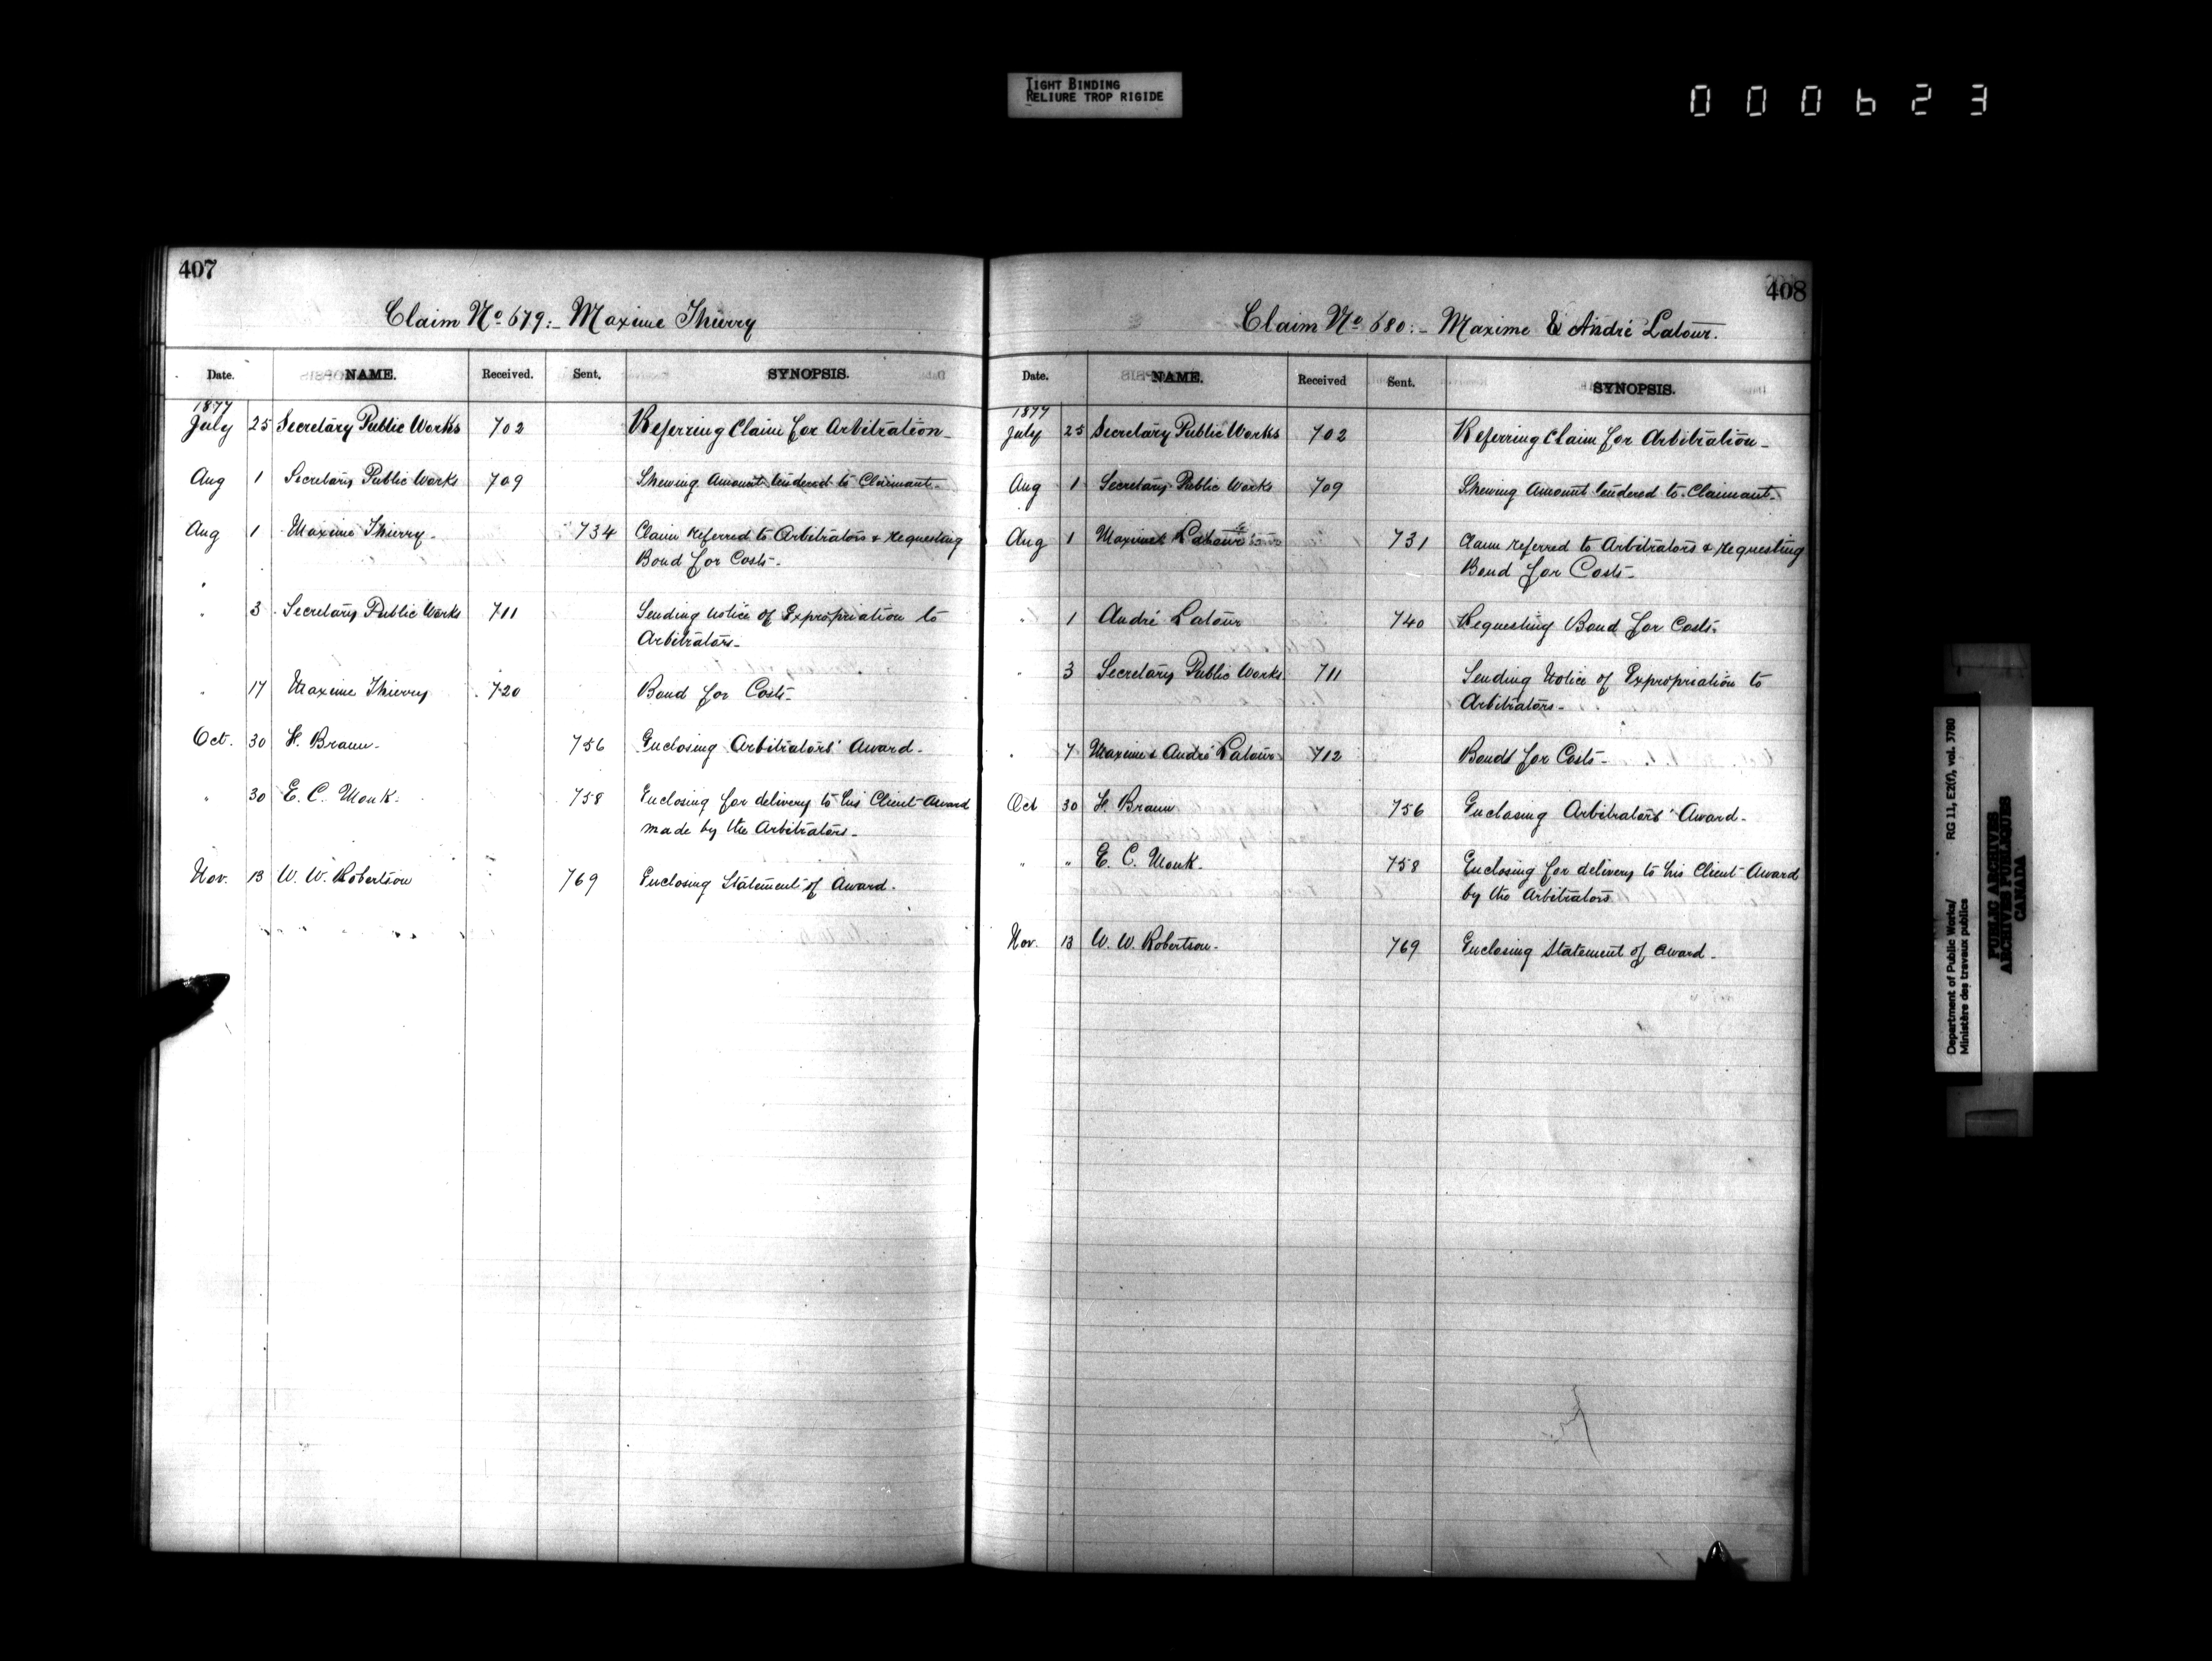 TIGHT BINDING
RELIURE TROP RIGIDE
000623
407
Claim No 679:- Maxime Thierry
Date. NAME. Received. Sent. SYNOPSIS.
1877
July 25 Secretary Public Works 702 Referring Claim for Arbitration-
Aug 1 Secretary Public Works 709 Shewing Amount tendered to Claimant-
Aug 1 Maxime Thierry- 734 Claim referred to Arbitrators & requesting
Bond for Costs-
" 3 Secretary Public Works 711 Sending Notice of Expropriation to
Arbitrators-
" 17 Maxime Thierry 720 Bond for Costs-
Oct. 30 F. Braun- 756 Enclosing Arbitrators' Award-
" 30 E. C. Monk- 758 Enclosing for delivery to his Client Award
made by the Arbitrators-
Nov. 13 W. W. Robertson 769 Enclosing Statement of Award-
408
Claim No 680:- Maxime & André Latour.
Date. NAME. Received Sent. SYNOPSIS.
1877
July 25 Secretary Public Works 702 Referring Claim for Arbitration-
Aug 1 Secretary Public Works 709 Shewing Amount tendered to Claimant-
Aug 1 Maxime Latour 731 Claim referred to Arbitrators & requesting
Bond for Costs-
" 1 André Latour 740 Requesting Bond for Costs-
" 3 Secretary Public Works 711 Sending Notice of Expropriation to
Arbitrators-
" 7 Maxime & André Latour 712 Bonds for Costs-
Oct 30 F. Braun 756 Enclosing Arbitrators' Award-
" " E. C. Monk- 758 Enclosing for delivery to his Client Award
by the Arbitrators
Nov. 13 W. W. Robertson- 769 Enclosing Statement of Award-
Department of Public Works/ RG 11, E2(f), vol. 3780
Ministère des travaux publics
PUBLIC ARCHIVES
ARCHIVES PUBLIQUES
CANADA